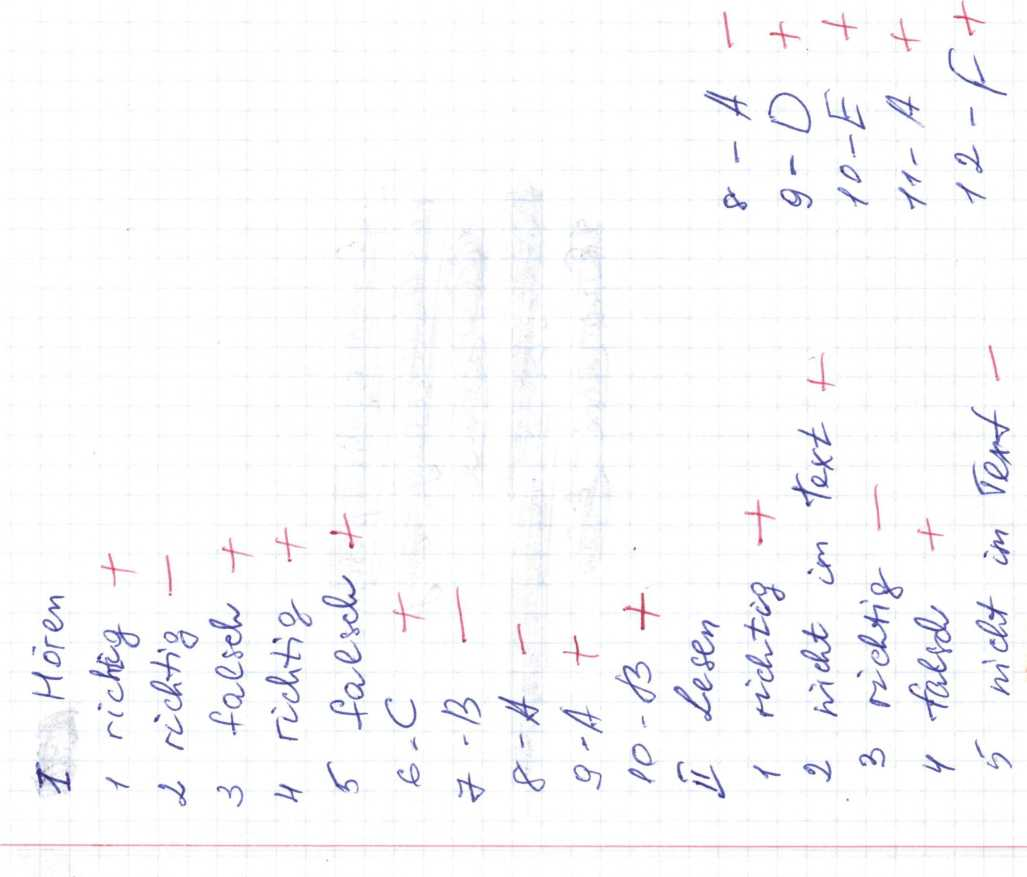 I Hören
1 richtig +
2 richtig –
3 falsch +
4 richtig +
5 falsch +
6 - C +
7 - B –
8 - A –
9 - A +
10 - B +
II Lesen
1 richtig +
2 nicht im Text +
3 richtig –
4 falsch +
5 nicht im Text –
8 - A –
9 - D +
10 - E +
11 - A +
12 - F +